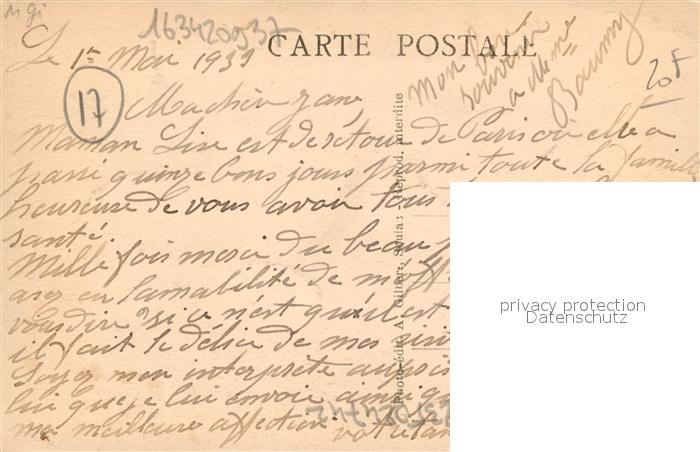 163420937
CARTE POSTALE
Le 1er Mai 1939
17
20F
Mon bon
souvenir
a Meme
Baumy
Ma chère
Maman Lise est de retour de Paris où elle a
passé quinze bons jours parmi toute la famille
heureuse de vous avoir tous
santé.
Mille fois merci du beau
avez eu l'amabilité de m'off
vous dire si ce n'est qu'il est
il fait le délice de mes
Soyez mon interprète auprès
lui que je lui envoie ainsi qu
ma meilleure affection votre tan
Photo-édit. A. Gilbert, - Reprod. interdite
privacy protection
Datenschutz